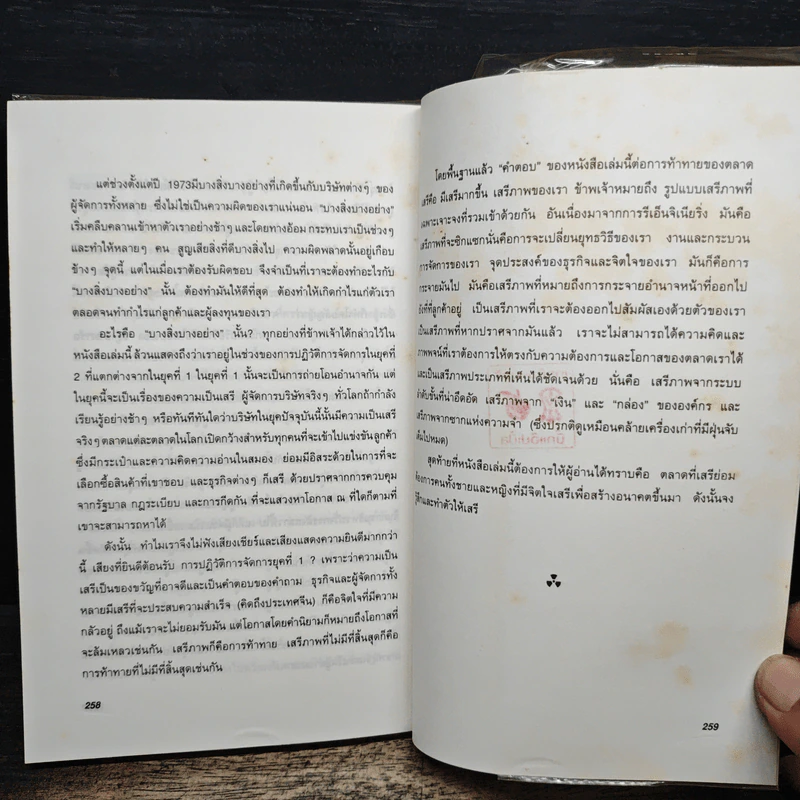 แต่ช่วงตั้งแต่ปี 1973มีบางสิ่งบางอย่างที่เกิดขึ้นกับบริษัทต่างๆ ของ
ผู้จัดการทั้งหลาย ซึ่งไม่ใช่เป็นความผิดของเราแน่นอน "บางสิ่งบางอย่าง"
เริ่มคืบคลานเข้าหาตัวเราอย่างช้าๆ และโดยทางอ้อม กระทบเราเป็นช่วงๆ
และทำให้หลายๆ คน สูญเสียสิ่งที่ดีบางสิ่งไป ความผิดพลาดนั้นอยู่เกือบ
ข้างๆ จุดนี้ แต่ในเมื่อเราต้องรับผิดชอบ จึงจำเป็นที่เราจะต้องทำอะไรกับ
"บางสิ่งบางอย่าง" นั้น ต้องทำมันให้ดีที่สุด ต้องทำให้เกิดกำไรแก่ตัวเรา
ตลอดจนทำกำไรแก่ลูกค้าและผู้ลงทุนของเรา
อะไรคือ "บางสิ่งบางอย่าง" นั้น? ทุกอย่างที่ข้าพเจ้าได้กล่าวไว้ใน
หนังสือเล่มนี้ ล้วนแสดงถึงว่าเราอยู่ในช่วงของการปฏิวัติการจัดการในยุคที่
2 ที่แตกต่างจากในยุคที่ 1 ในยุคที่ 1 นั้นจะเป็นการถ่ายโอนอำนาจกัน แต่
ในยุคนี้จะเป็นเรื่องของความเป็นเสรี ผู้จัดการบริษัทจริงๆ ทั่วโลกถ้ากำลัง
เรียนรู้อย่างช้าๆ หรือทันทีทันใดว่าบริษัทในยุคปัจจุบันนี้นั้นมีความเป็นเสรี
จริงๆ ตลาดแต่ละตลาดในโลกเปิดกว้างสำหรับทุกคนที่จะเข้าไปแข่งขันลูกค้า
ซึ่งมีกระเป๋าและความคิดความอ่านในสมอง ย่อมมีอิสระในการที่จะ
เลือกซื้อสินค้าที่เขาชอบ และธุรกิจต่างๆ ก็เสรี ด้วยปราศจากการควบคุม
จากรัฐบาล กฎระเบียบ และการกีดกัน ที่จะแสวงหาโอกาส ณ ที่ใดก็ตามที่
เขาจะสามารถหาได้
ดังนั้น ทำไมเราจึงไม่ฟังเสียงเชียร์และเสียงแสดงความยินดีมากกว่า
นี้ เสียงที่ยินดีต้อนรับ การปฏิวัติการจัดการยุคที่ 1 ? เพราะว่าความเป็น
เสรีเป็นของขวัญที่อาจดีและเป็นคำตอบของคำถาม ธุรกิจและผู้จัดการทั้ง
หลายมีเสรีที่จะประสบความสำเร็จ (คิดถึงประเทศจีน) ก็คือจิตใจที่มีความ
กลัวอยู่ ถึงแม้เราจะไม่ยอมรับมัน แต่โอกาสโดยคำนิยามก็หมายถึงโอกาสที่
จะล้มเหลวเช่นกัน เสรีภาพก็คือการท้าทาย เสรีภาพที่ไม่มีที่สิ้นสุดก็คือ
การท้าทายที่ไม่มีที่สิ้นสุดเช่นกัน
258
โดยพื้นฐานแล้ว "คำตอบ" ของหนังสือเล่มนี้ต่อการท้าทายของตลาด
เสรีคือ มีเสรีมากขึ้น เสรีภาพของเรา ข้าพเจ้าหมายถึง รูปแบบเสรีภาพที่
เฉพาะเจาะจงที่รวมเข้าด้วยกัน อันเนื่องมาจากการรีเอ็นจิเนียริ่ง มันคือ
เสรีภาพที่จะซิกแซกนั่นคือการจะเปลี่ยนยุทธวิธีของเรา งานและกระบวน
การจัดการของเรา จุดประสงค์ของธุรกิจและจิตใจของเรา มันก็คือการ
กระจายมันไป มันคือเสรีภาพจากการกระจายอำนาจหน้าที่ออกไป
ยังที่ที่ลูกค้าอยู่ เป็นเสรีภาพที่เราจะต้องออกไปสัมผัสเองด้วยตัวของเรา
เป็นเสรีภาพที่หากปราศจากมันแล้ว เราจะไม่สามารถได้ความคิดและ
ภาพพจน์ที่เราต้องการให้ตรงกับความต้องการและโอกาสของตลาดเราได้
และเป็นเสรีภาพประเภทที่เห็นได้ชัดเจนด้วย นั่นคือ เสรีภาพจากระบบ
ลำดับชั้นที่น่าอึดอัด เสรีภาพจาก "เงิน" และ "กล่อง" ขององค์กร และ
เสรีภาพจากซากแห่งความจำ (ซึ่งปรกติดูเหมือนคล้ายเครื่องเก่าที่มีฝุ่นจับ
เต็มไปหมด)
สุดท้ายที่หนังสือเล่มนี้ต้องการให้ผู้อ่านได้ทราบคือ ตลาดที่เสรีย่อม
ต้องการคนทั้งชายและหญิงที่มีจิตใจเสรีเพื่อสร้างอนาคตขึ้นมา ดังนั้นจง
รู้สึกและทำตัวให้เสรี
259